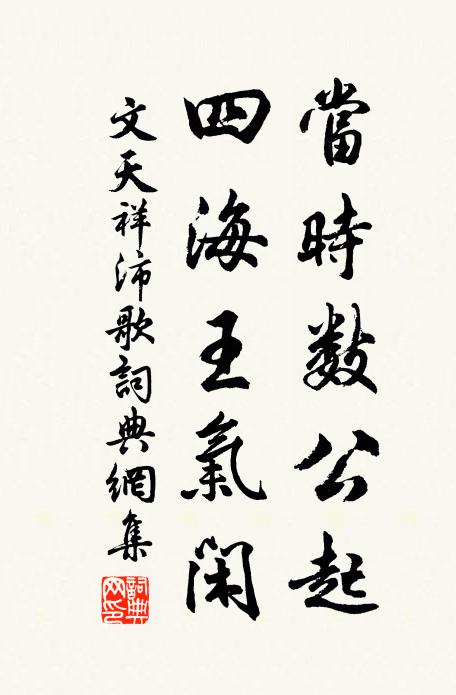 當時數公起
四海王氣闲
文天祥沛歌詞典網集
詞典网印